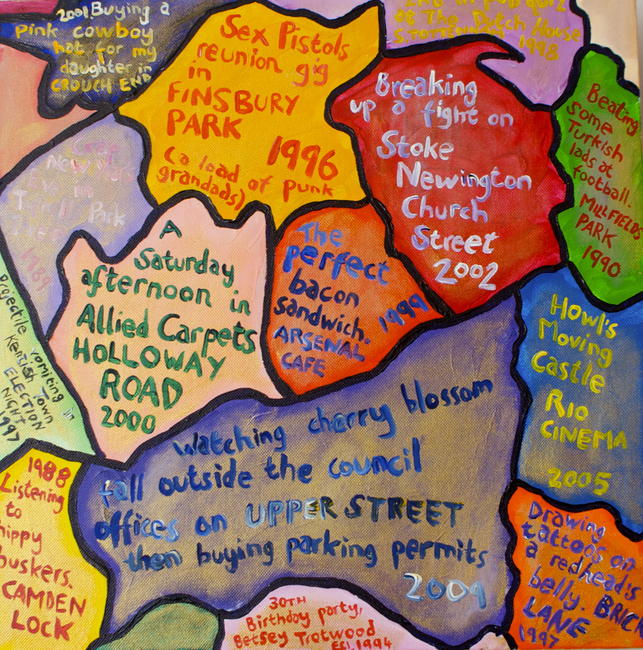 2001 Buying a
pink cowboy
hat for my
daughter in
CROUCH END
Sex Pistols
reunion gig
in
FINSBURY
PARK 1996
(a load of punk
grandads)
The Dutch House
1998
Breaking
up a fight on
Stoke
Newington
Church
Street
2002
Beating
some
Turkish
lads at
football.
MILLFIELDS
PARK
1990
New Year's
Eve in
Park
1989
A
Saturday
afternoon in
Allied Carpets
HOLLOWAY
ROAD
2000
The
perfect
bacon
sandwich. 1999
ARSENAL
CAFE
Howl's
Moving
Castle
RIO
CINEMA
2005
Projectile vomiting in
Kentish Town
ELECTION
NIGHT
1997
Watching cherry blossom
fall outside the council
offices on UPPER STREET
then buying parking permits
2009
1988
Listening
to
hippy
buskers.
CAMDEN
LOCK
30TH
Birthday party,
Betsey Trotwood
EC1. 1994
Drawing
tattoos on
a redhead's
belly. BRICK
LANE
1997